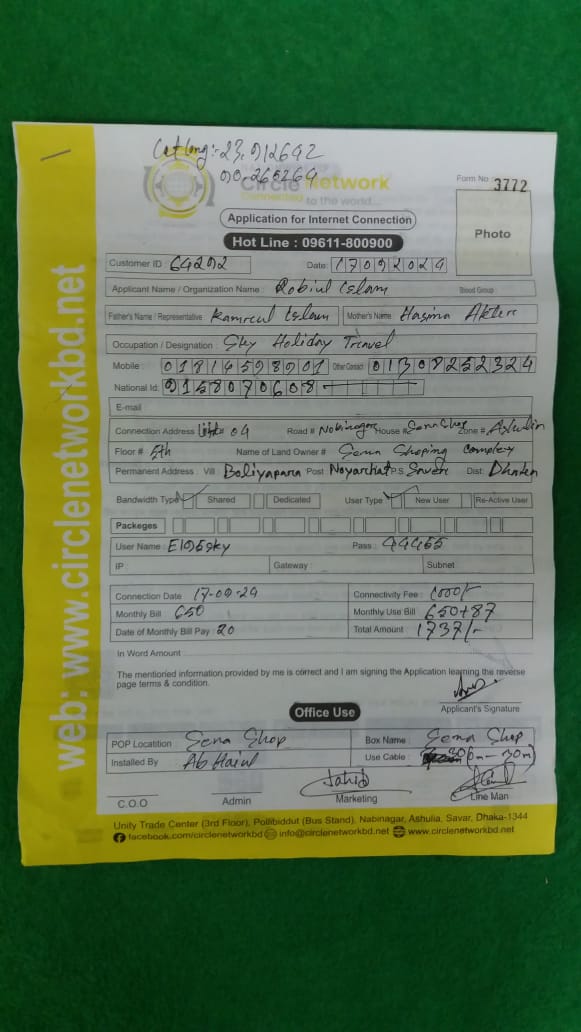 Lat long:- 23.912692
90.260269
Circle Network
Connected to the world...
Form No: 3772
Photo
Application for Internet Connection
Hot Line : 09611-800900
Customer ID : 64292 Date: 17092024
Applicant Name / Organization Name : Robiul Islam Blood Group
Father's Name / Representative : Kamrul Islam Mother's Name Hasina Akter
Occupation / Designation : Sky Holiday Travel
Mobile : Other Contact : 01308252324
National Id: 9158070608
E-mail
Connection Address 04 Road # Nobinagor House # Sena Shop Zone # Ashulia
Floor # 5th Name of Land Owner # Sena Shoping Complex
Permanent Address : Vill Boliyapara Post Noyarhat P.S Savar Dist: Dhaka
Bandwidth Type Shared Dedicated User Type New User Re-Active User
Packeges
User Name : Pass : 44455
IP : Gateway : Subnet
Connection Date 17-09-24 Connectivity Fee : 1000/-
Monthly Bill 650 Monthly Use Bill 650+87
Date of Monthly Bill Pay : 20 Total Amount 1737/-
In Word Amount
The mentioried information provided by me is correct and I am signing the Application learning the reverse
page terms & condition.
Applicant's Signature
Office Use
POP Locatition Sena Shop Box Name : Sena Shop
Installed By Use Cable :
Jahid
C.O.O Admin Marketing Line Man
Unity Trade Center (3rd Floor), Pollibiddut (Bus Stand), Nabinagar, Ashulia, Savar, Dhaka-1344
facebook.com/circlenetworkbd info@circlenetworkbd.net www.circlenetworkbd.net
web: www.circlenetworkbd.net